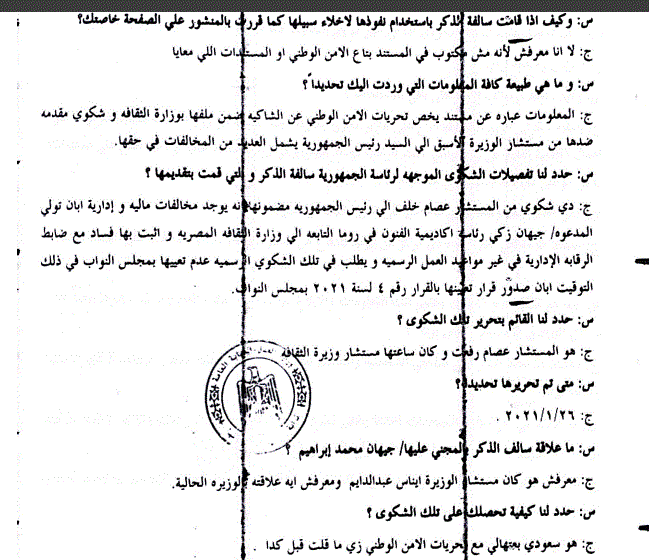 س: وكيف اذا قامت سالفة الذكر باستخدام نفوذها لاخلاء سبيلها كما قررت بالمنشور علي الصفحة خاصتك؟
ج: لا انا معرفش لأنه مش مكتوب في المستند بتاع الامن الوطني او المستندات اللي معايا
س: و ما هي طبيعة كافة المعلومات التي وردت اليك تحديداً؟
ج: المعلومات عباره عن مستند يخص تحريات الامن الوطني عن الشاكيه ضمن ملفها بوزارة الثقافه و شكوي مقدمه
ضدها من مستشار الوزيرة الأسبق الي السيد رئيس الجمهورية يشمل العديد من المخالفات في حقها.
س: حدد لنا تفصيلات الشكوى الموجهه لرئاسة الجمهورية سالفة الذكر و التي قمت بتقديمها ؟
ج: دي شكوي من المستشار عصام خلف الي رئيس الجمهوريه مضمونها انه يوجد مخالفات ماليه و إدارية ابان تولي
المدعوه/ جيهان زكي رئاسة اكاديمية الفنون في روما التابعه الي وزارة الثقافه المصريه و اثبت بها فساد مع ضابط
الرقابه الإدارية في غير مواعيد العمل الرسميه و يطلب في تلك الشكوي الرسميه عدم تعيينها بمجلس النواب في ذلك
التوقيت ابان صدور قرار تعيينها بالقرار رقم ٤ لسنة ٢٠٢١ بمجلس النواب.
س: حدد لنا القائم بتحرير تلك الشكوى ؟
ج: هو المستشار عصام رفعت و كان ساعتها مستشار وزيرة الثقافه
س: متى تم تحريرها تحديدا؟
ج: ٢٠٢١/١/٢٦ .
س: ما علاقة سالف الذكر بالمجني عليها/ جيهان محمد إبراهيم ؟
ج: معرفش هو كان مستشار الوزيرة ايناس عبدالدايم ومعرفش ايه علاقته بالوزيره الحالية.
س: حدد لنا كيفية تحصلك على تلك الشكوى ؟
ج: هو سعودي بعتهالي مع تحريات الامن الوطني زي ما قلت قبل كدا .